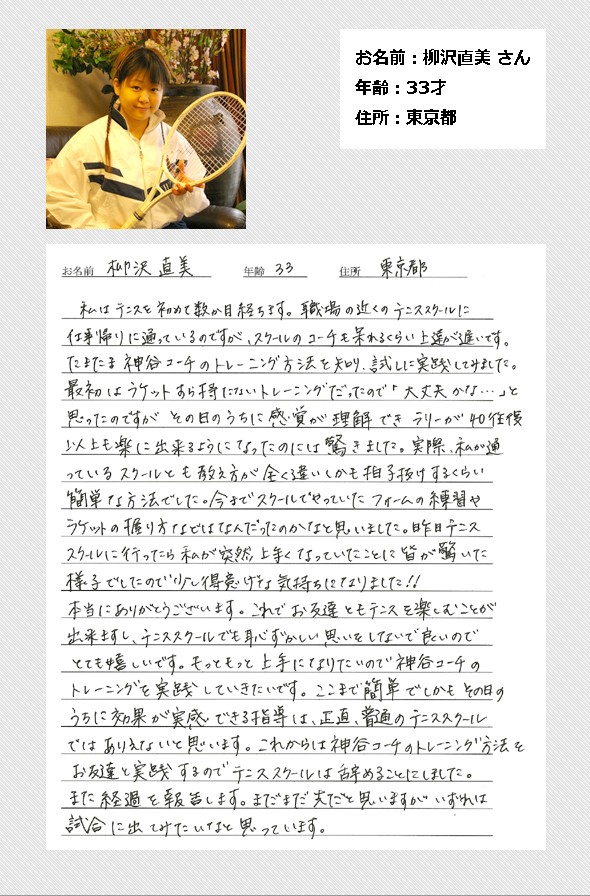 お名前：柳沢直美 さん
年齢：33才
住所：東京都
お名前 柳沢 直美 年齢 33 住所 東京都
私はテニスを初めて数か月経ちます。職場の近くのテニススクールに
仕事帰りに通っているのですが、スクールのコーチも呆れるくらい上達が遅いです。
たまたま神谷コーチのトレーニング方法を知り、試しに実践してみました。
最初はラケットすら持たないトレーニングだったので「大丈夫かな…」と
思ったのですが その日のうちに感覚が理解でき ラリーが40往復
以上も楽に出来るようになったのには驚きました。実際、私が通
っているスクールとも教え方が全く違いしかも拍子抜けするくらい
簡単な方法でした。今までスクールでやっていたフォームの練習や
ラケットの握り方などはなんだったのかなと思いました。昨日テニス
スクールに行ったら私が突然上手くなっていたことに皆が驚いた
様子でしたので少し得意げな気持ちになりました!!
本当にありがとうございます。これでお友達ともテニスを楽しむことが
出来ますし、テニススクールでも恥ずかしい思いをしないで良いので
とても嬉しいです。もっともっと上手になりたいので神谷コーチの
トレーニングを実践していきたいです。ここまで簡単でしかもその日の
うちに効果が実感できる指導は、正直、普通のテニススクール
ではありえないと思います。これからは神谷コーチのトレーニング方法を
お友達と実践するのでテニススクールは辞めることにしました。
また経過を報告します。まだまだ先だと思いますがいずれは
試合に出てみたいなと思っています。